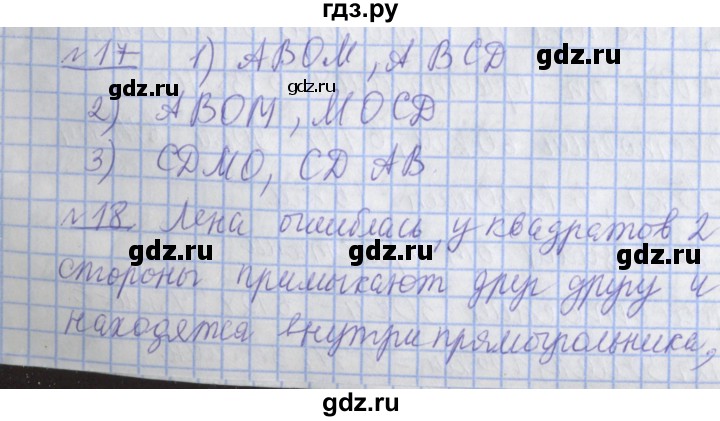 гдз.ру
№17 1) АВОМ, АВСD
gdz.ru gdz.ru
2) АВОМ, МОСD
3) CDMO, CD AB.
№18. Лена ошиблась, у квадратов 2
gdz.ru gdz.ru
стороны примыкают друг другу и
находятся внутри прямоугольника,
gdz.ru gdz.ru
gdz.ru